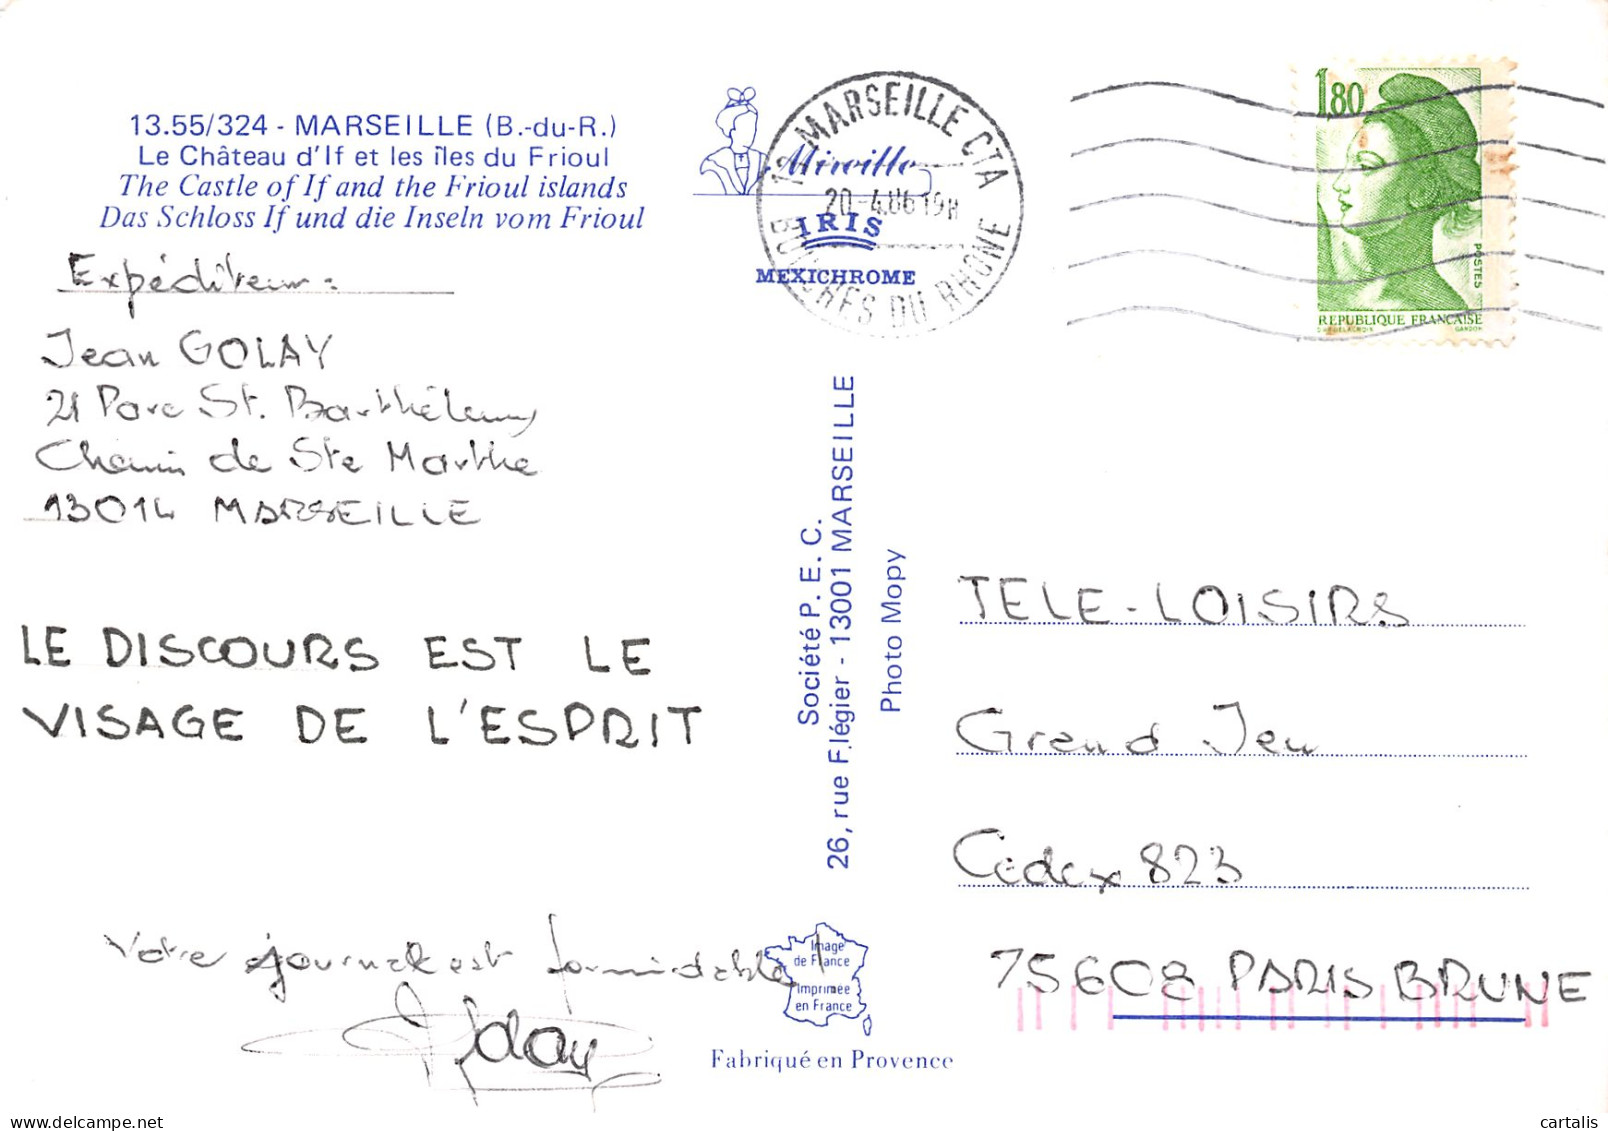 13.55/324 - MARSEILLE (B.-du-R.)
Le Château d'If et les îles du Frioul
The Castle of If and the Frioul islands
Das Schloss If und die Inseln vom Frioul
Expéditeur:
Jean GOLAY
21 Parc St. Barthélemy
Chemin de Ste Marthe
13014 MARSEILLE
LE DISCOURS EST LE
VISAGE DE L'ESPRIT
Votre journal est formidable!
Mireille
IRIS
MEXICHROME
13 MARSEILLE CTA
20-4.86 19H
BOUCHES DU RHONE
Société P. E. C.
26, rue F.légier - 13001 MARSEILLE
Photo Mopy
Image
de France
Imprimée
en France
Fabriqué en Provence
1,80
POSTES
REPUBLIQUE FRANÇAISE
D'APRES DELACROIX GANDON
TELE-LOISIRS
Grand Jeu
Cedex 823
75608 PARIS BRUNE
cartalis